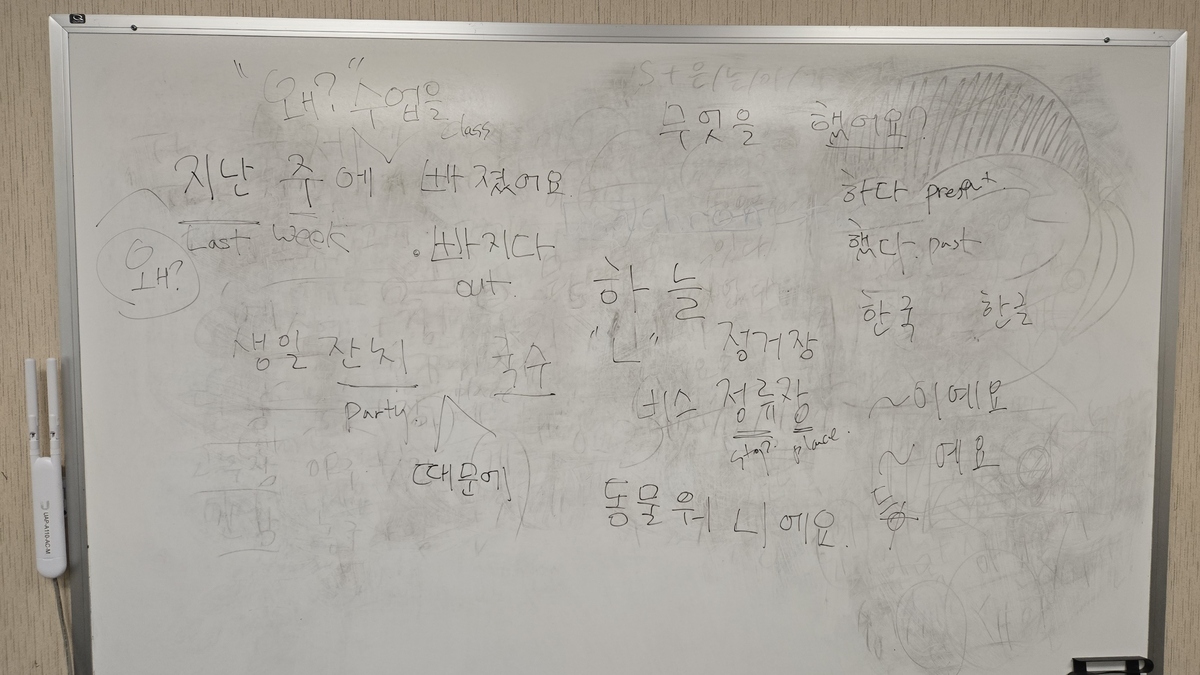 "왜?" 수업을
class
지난 주에 빠졌어요
Last week
왜?
• 빠지다
out.
생일 잔치 국수
party!
때문에
S + 은/는/이/가
무엇을 했어요?
하다 present
했다. past
하늘
"ㄴ"
한국 한글
정거장
버스 정류장
stop. place.
~이에요
~예요
동물워 니에요.
UAP-A110AC-M